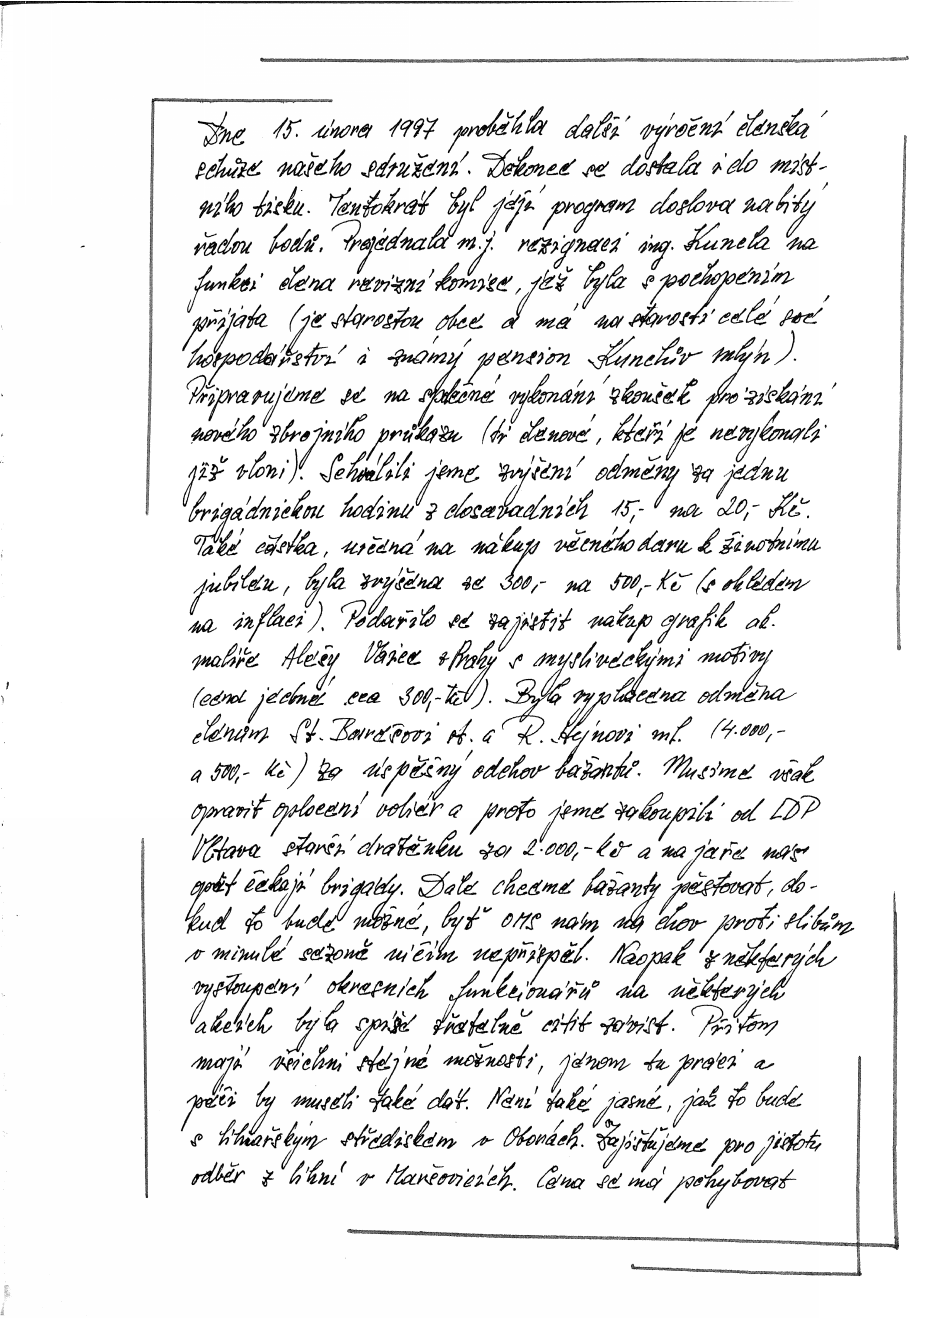 Dne 15. února 1997 proběhla další výroční členská
schůze našeho sdružení. Dokonce se dostala i do míst-
ního tisku. Tentokrát byl její program doslova nabitý
řadou bodů. Projednala m.j. rezignaci ing. Kuncla na
funkci člena revizní komise, jež byla s pochopením
přijata (je starostou obce a má na starosti celé své
hospodářství i známý pension Kunclův mlýn).
Připravujeme se na společné vykonání zkoušek pro získání
nového zbrojního průkazu (ti členové, kteří je nevykonali
již vloni). Schválili jsme zvýšení odměny za jednu
brigádnickou hodinu z dosavadních 15,- na 20,- Kč.
Také částka, určená na nákup věcného daru k životnímu
jubileu, byla zvýšena ze 300,- na 500,- Kč (s ohledem
na inflaci). Podařilo se zajistit nákup grafik ak.
malíře Aleše z Prahy s mysliveckými motivy
(cena jedné cca 300,- Kč). Byla vyplacena odměna
členům St. st. a R. Hejnovi ml. (4.000,-
a 500,- Kč) za úspěšný odchov bažantů. Musíme však
opravit oplocení voliér a proto jsme zakoupili od LDP
Vltava starší dratěnku za 2.000,- Kč a na jaře nás
opět čekají brigády. Dále chceme bažanty pěstovat, do-
kud to bude možné, byť OMS nám na chov proti slibům
v minulé sezoně ničím nepřispěl. Naopak z některých
vystoupení okresních funkcionářů na některých
akcích byla spíše zřetelně cítit závist. Přitom
mají všichni stejné možnosti, jenom tu práci a
péči by museli také dát. Není také jasné, jak to bude
s líhňařským střediskem v Obonách. Zajišťujeme pro jistotu
odběr z líhní v Maršovicích. Cena se má pohybovat